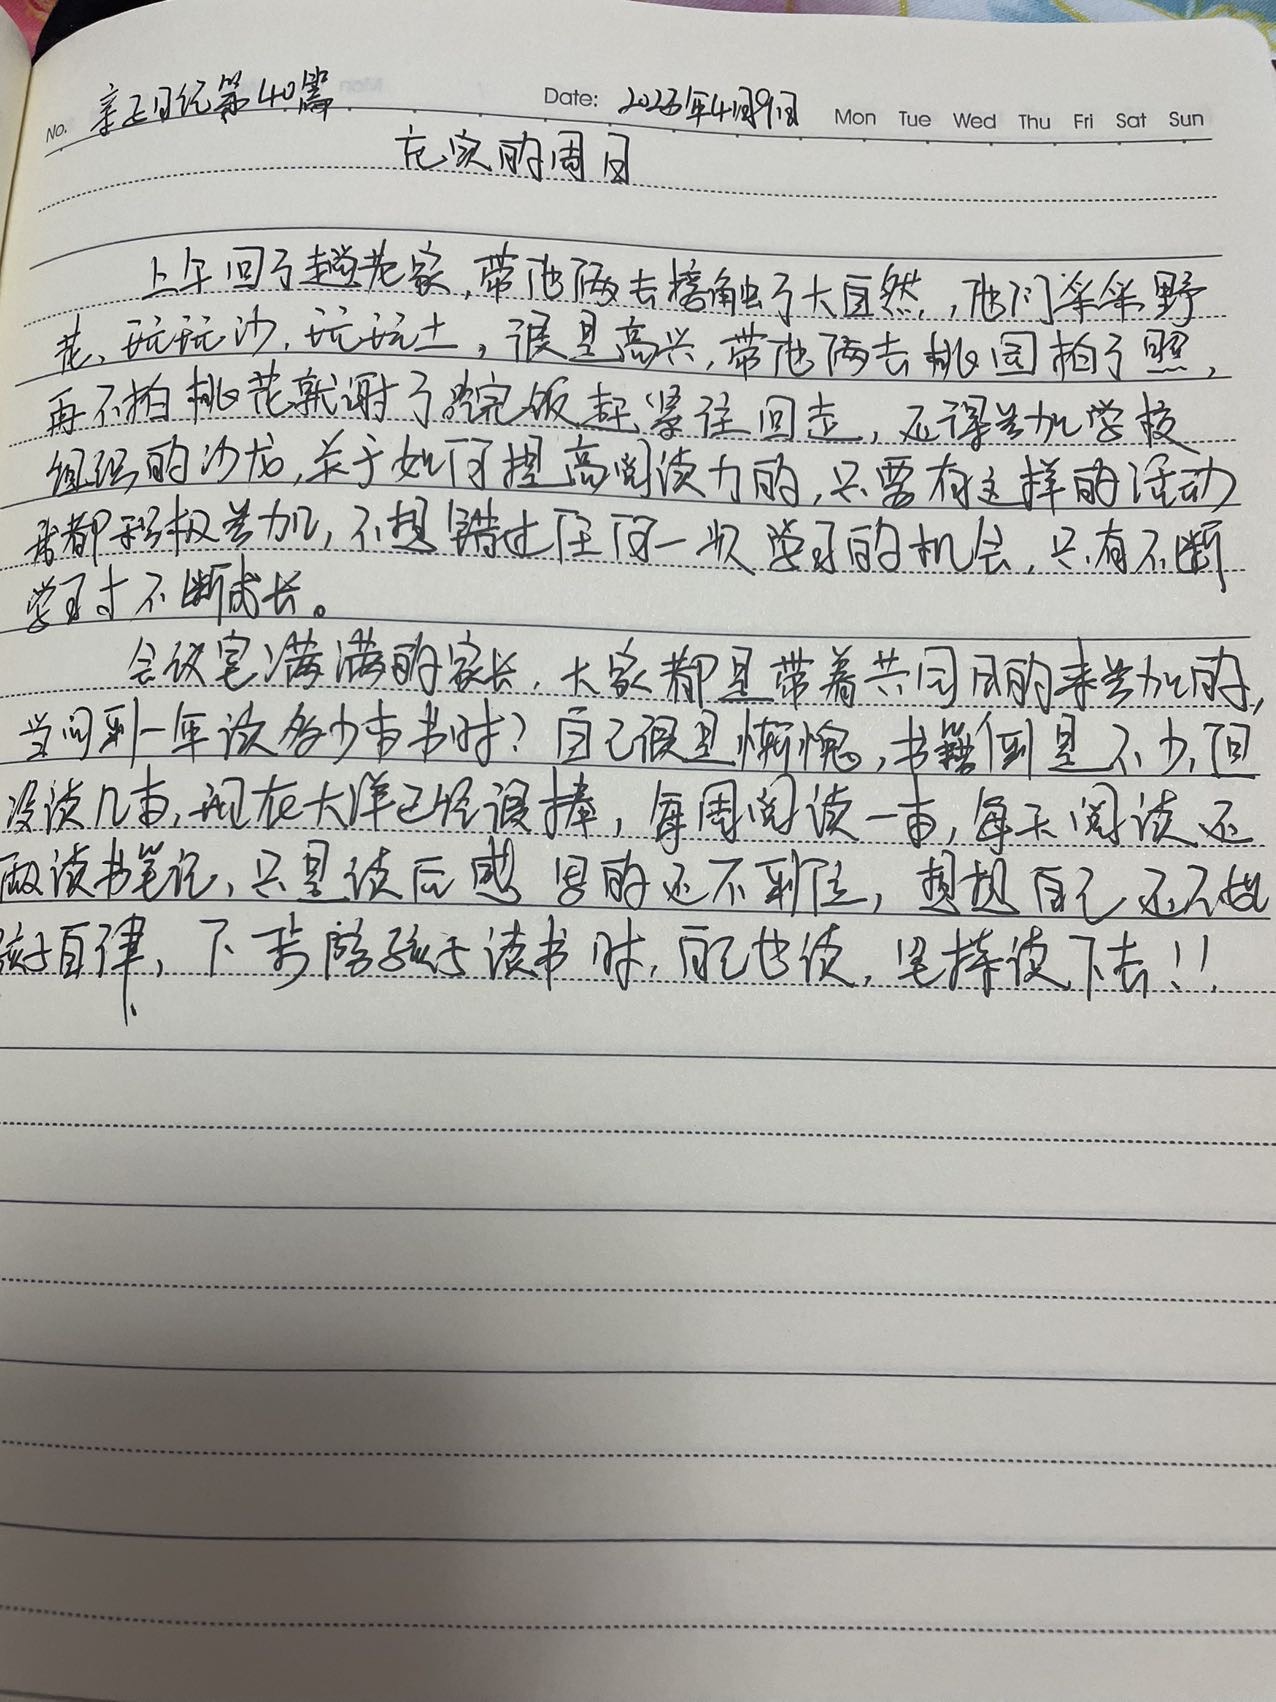 No. 亲子日记第40篇 Date: 2023年4月9日 Mon Tue Wed Thu Fri Sat Sun
充实的周日
上午回了趟老家,带他俩去接触了大自然,他们采采野
花、玩玩沙,玩玩土,很是高兴,带他俩去桃园拍了照,
再不拍桃花就谢了,吃完饭赶紧往回走,还得参加学校
组织的沙龙,关于如何提高阅读力的,只要有这样的活动
我都积极参加,不想错过任何一次学习的机会,只有不断
学习才不断成长。
会议室满满的家长,大家都是带着共同目的来参加的,
当问到一年读多少本书时?自己很是惭愧,书籍倒是不少,但
没读几本,现在大洋已经很棒,每周阅读一本,每天阅读还
做读书笔记,只是读后感写的还不到位,想想自己还不如
孩子自律,下步陪孩子读书时,自己也读,坚持读下去!!